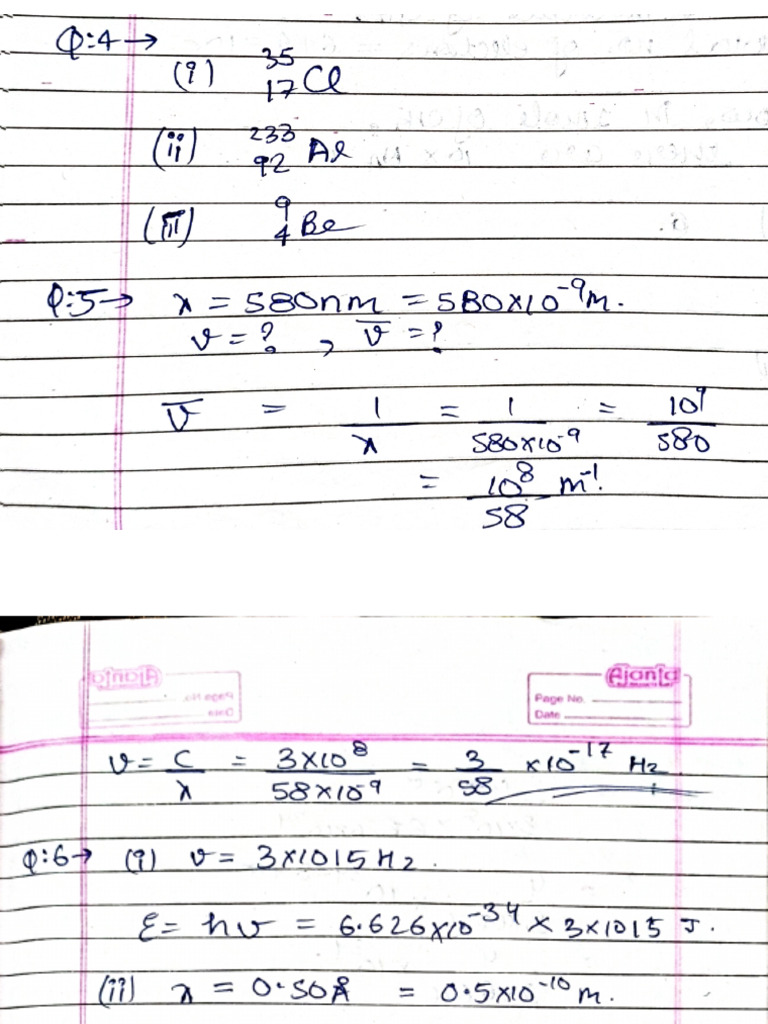 Q:4→
(i) ³⁵₁₇Cl
(ii) ²³³₉₂ Al
(iii) ⁹₄Be
Q:5→ λ = 580nm = 580×10⁻⁹m.
ν = ? , ν̅ = ?
ν̅ = 1/λ = 1/580×10⁻⁹ = 10⁹/580
= 10⁸/58 m⁻¹.
Ajanta
Page No.
Date
ν = C/λ = 3×10⁸/58×10⁹ = 3/58 ×10⁻¹⁷ Hz
Q:6→ (i) ν = 3×1015Hz.
E = hν = 6.626×10⁻³⁴ × 3×1015 J.
(ii) λ = 0.50Å = 0.5×10⁻¹⁰ m.